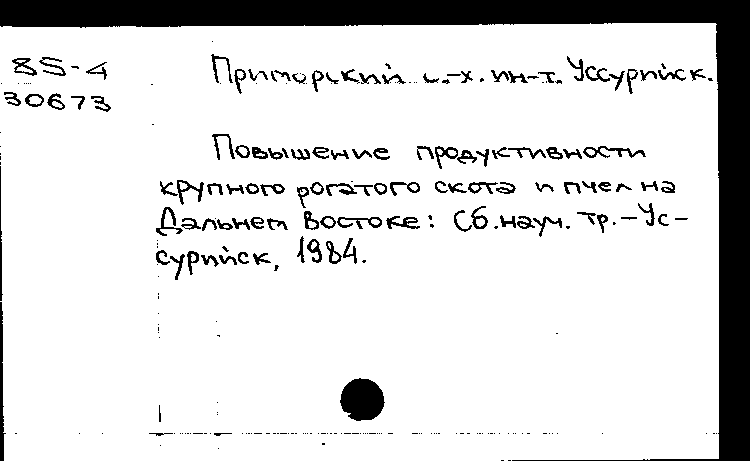 85-4
30673
Приморский с.-х. ин-т. Уссурийск.
Повышение продуктивности
крупного рогатого скота и пчел на
Дальнем Востоке: Сб. науч. тр. – Ус-
сурийск, 1984.